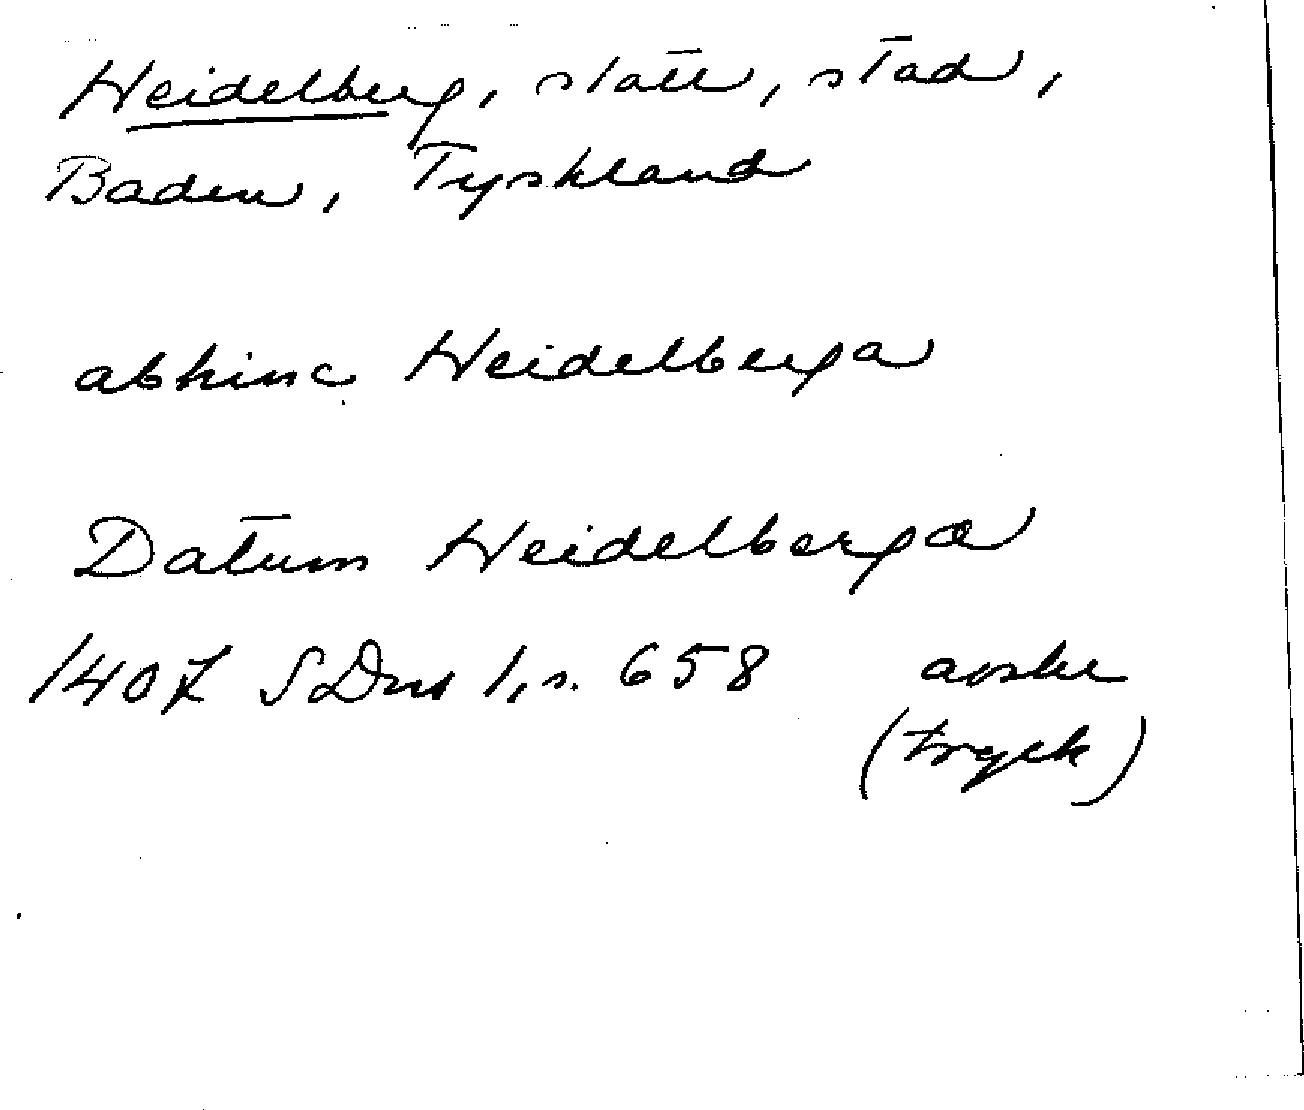 Heidelberg, slott, stad,
Baden, Tyskland
abhinc Heidelberga
Datum Heidelberga
1407 SDns 1, s. 658 avskr
(tryck)